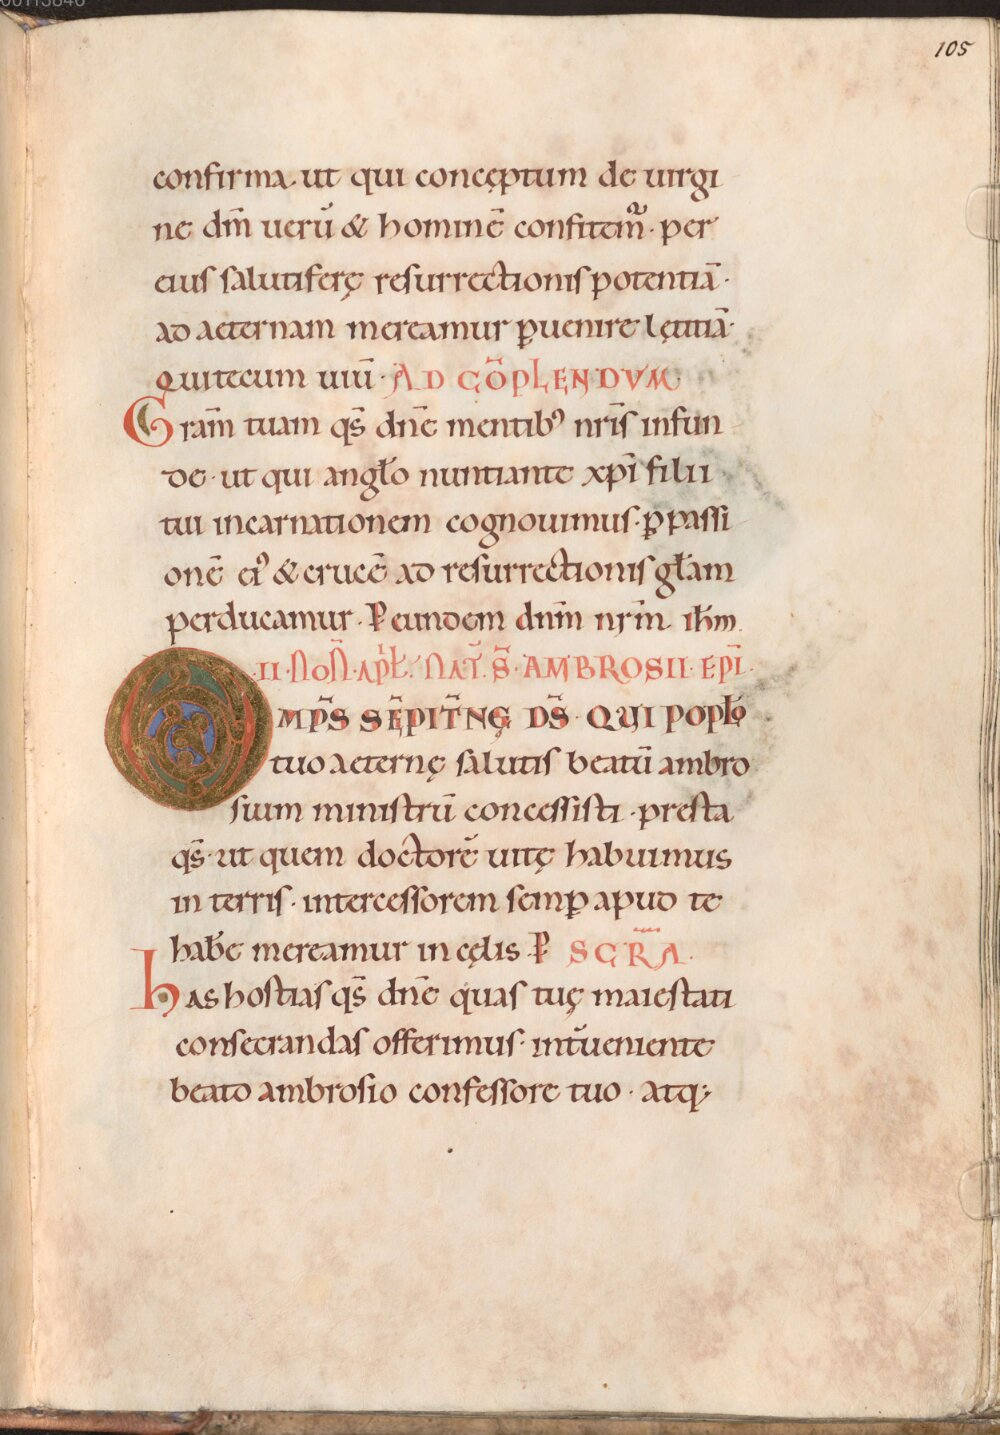 105
confirma. ut qui concęptum de uirgi
ne dm̄ uerū & hominē confitem̃. per
eius salutiferę resurrectionis potentiā.
ad aeternam mereamur ꝑuenire lętitiā.
Qui tecum uiū. AD CŌPLENDVM
Gr̄am tuam qs̄ dn̄e mentibꝰ nr̄is infun
de. ut qui angł̄o nuntiante xp̄i filii
tui incarnationem cognouimus. ꝑ passi
onē eiꝰ & crucē ad resurrectionis gl̄am
perducamur. P̱ eundem dn̄m nr̄m ih̄m
.II. NON̄. APRL̄. NAT̄. S̄. AMBROSII. EP̄I.
OMP̄S SĒPIT̄NĘ D̄S. QUI POPLO̅
tuo aeternę salutis beatū ambro
sium ministrū concessisti. presta
qs̄. ut quem doctorē uitę habuimus
in terris. intercessorem semꝑ apud te
hab̄e mereamur in cęlis P̱ SCR̄A.
has hostias qs̄ dn̄e quas tuę maiestati
consecrandas offerimus. int̄ueniente
beato ambrosio confessore tuo. atq;